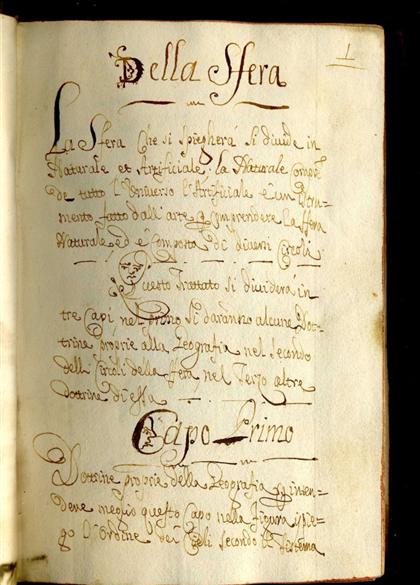 1
Della Sfera
La Sfera che si spiegherá si divide in
Naturale et Artificiale. la Naturale Compren=
de tutto l'Universo l'Artificiale e' un Stru=
mento fatto dall'arte p comprendere la sfera
Naturale, ed e' Composta di diversi Circoli.
Questo Trattato si dividerá in
tre Capi, nel primo si daranno alcune Dot=
trine proprie alla Geografia nel secondo
delli Circoli della sfera nel Terzo altre
dottrine di essa
Capo Primo
Dottrine proprie della Geografia p inten=
dere meglio questo Capo nella figura spie=
go l'Ordine dei Cieli secondo il Sistema